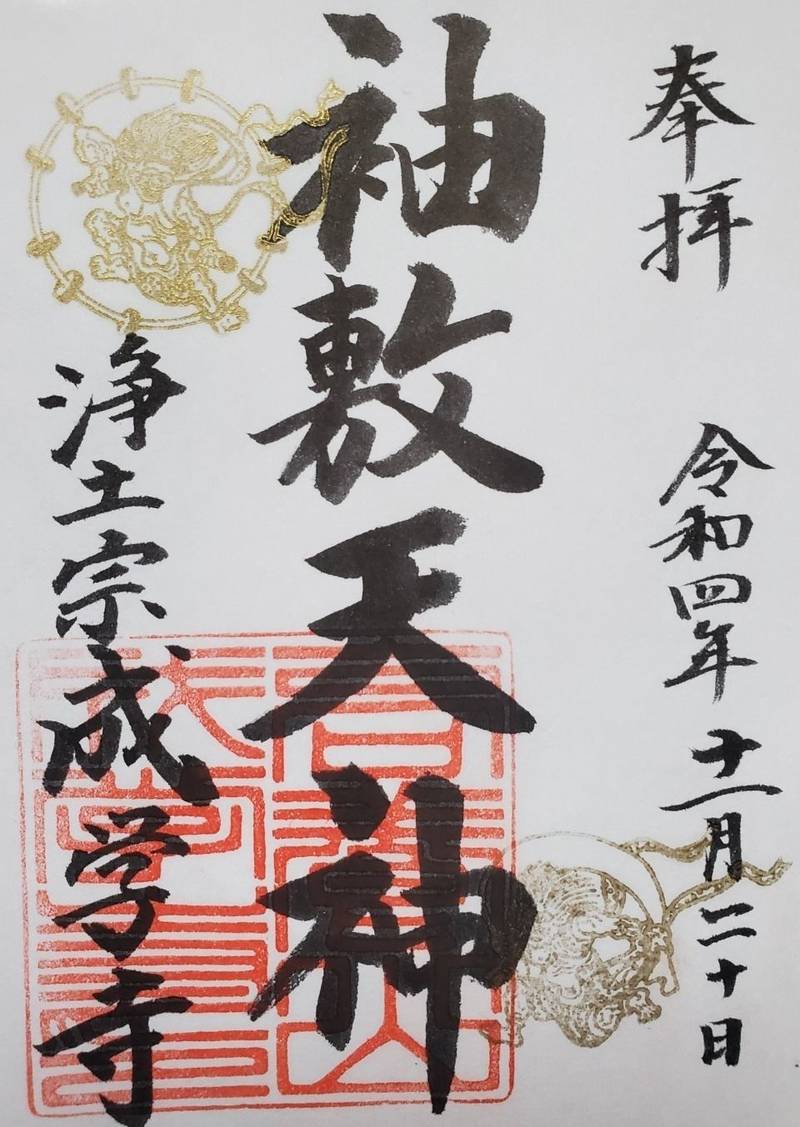 奉拝 令和四年十一月二十日
袖敷天神
浄土宗成学寺